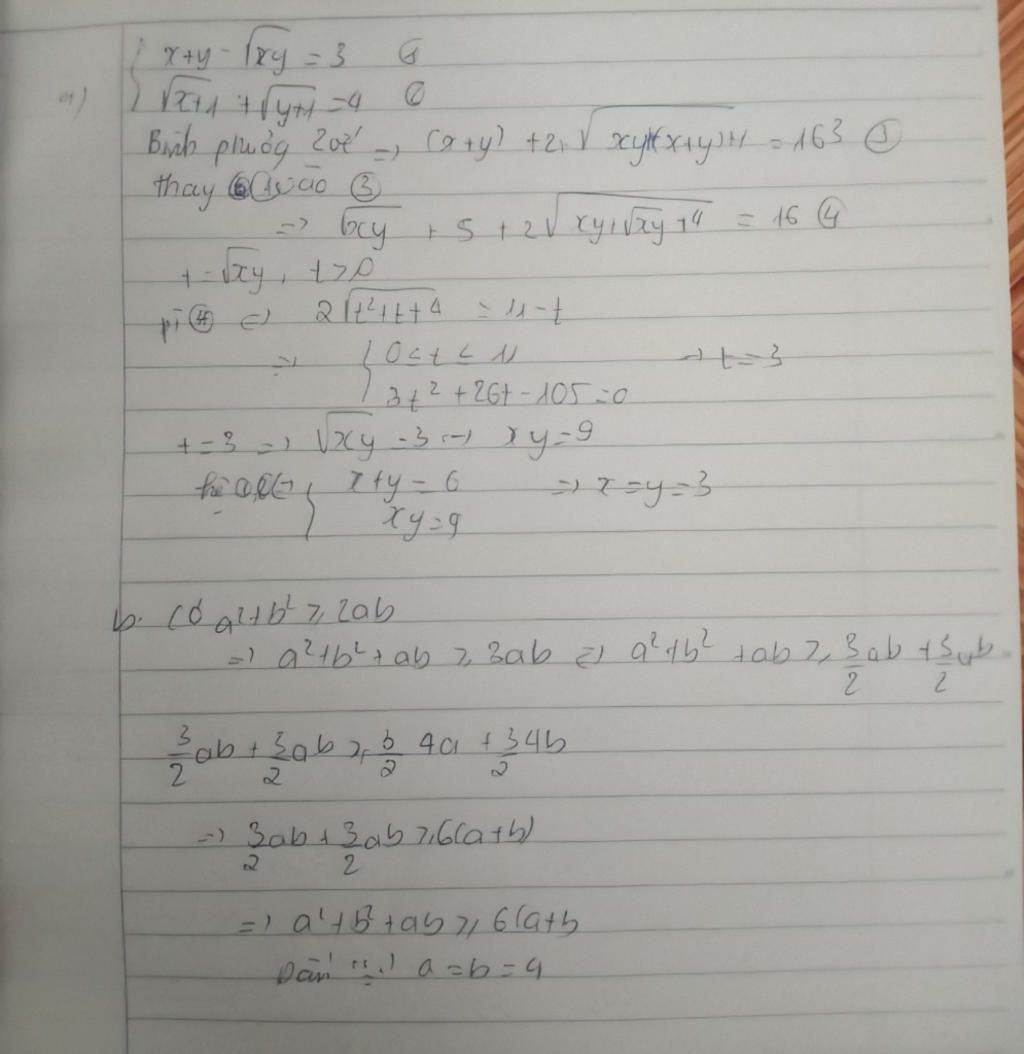 a) { x+y - √xy = 3 ①
√x+1 + √y+1 = 4 ②
Bình phương 2 vế => (x+y) + 2 √xy+(x+y)+1 = 16 ③
thay ① vào ③
=> √xy + 5 + 2√xy+√xy+4 = 16 ④
t = √xy, t > 0
pt ④ <=> 2√t²+t+4 = 11 - t
=> { 0 ≤ t ≤ 11 => t = 3
3t² + 26t - 105 = 0
t = 3 => √xy = 3 => xy = 9
hệ { x+y = 6 => x = y = 3
xy = 9
b. Có a²+b² ≥ 2ab
=> a²+b²+ab ≥ 3ab => a²+b² + ab ≥ 3/2 ab + 3/2 ab
3/2 ab + 3/2 ab ≥ 3/2 4a + 3/2 4b
=> 3/2 ab + 3/2 ab ≥ 6(a+b)
=> a²+b²+ab ≥ 6(a+b
Dấu "=" a = b = 4